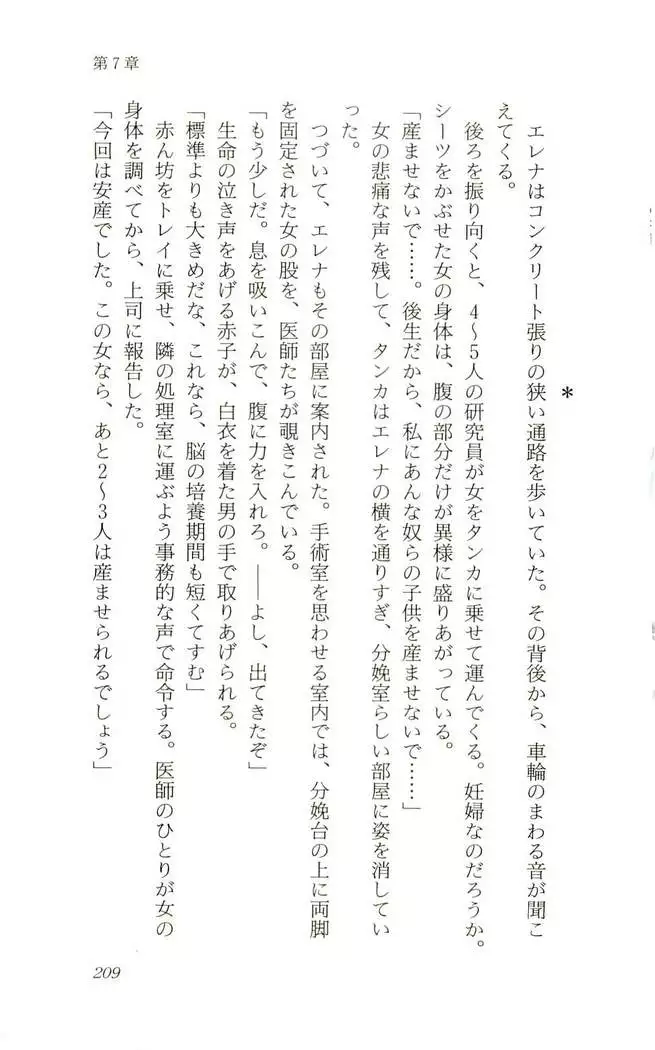 第7章
*
エレナはコンクリート張りの狭い通路を歩いていた。その背後から、車輪のまわる音が聞こ
えてくる。
後ろを振り向くと、4〜5人の研究員が女をタンカに乗せて運んでくる。妊婦なのだろうか。
シーツをかぶせた女の身体は、腹の部分だけが異様に盛りあがっている。
「産ませないで……。後生だから、私にあんな奴らの子供を産ませないで……」
女の悲痛な声を残して、タンカはエレナの横を通りすぎ、分娩室らしい部屋に姿を消してい
った。
つづいて、エレナもその部屋に案内された。手術室を思わせる室内では、分娩台の上に両脚
を固定された女の股を、医師たちが覗きこんでいる。
「もう少しだ。息を吸いこんで、腹に力を入れろ。――よし、出てきたぞ」
生命の泣き声をあげる赤子が、白衣を着た男の手で取りあげられる。
「標準よりも大きめだな、これなら、脳の培養期間も短くてすむ」
赤ん坊をトレイに乗せ、隣の処理室に運ぶよう事務的な声で命令する。医師のひとりが女の
身体を調べてから、上司に報告した。
「今回は安産でした。この女なら、あと2〜3人は産ませられるでしょう」
209